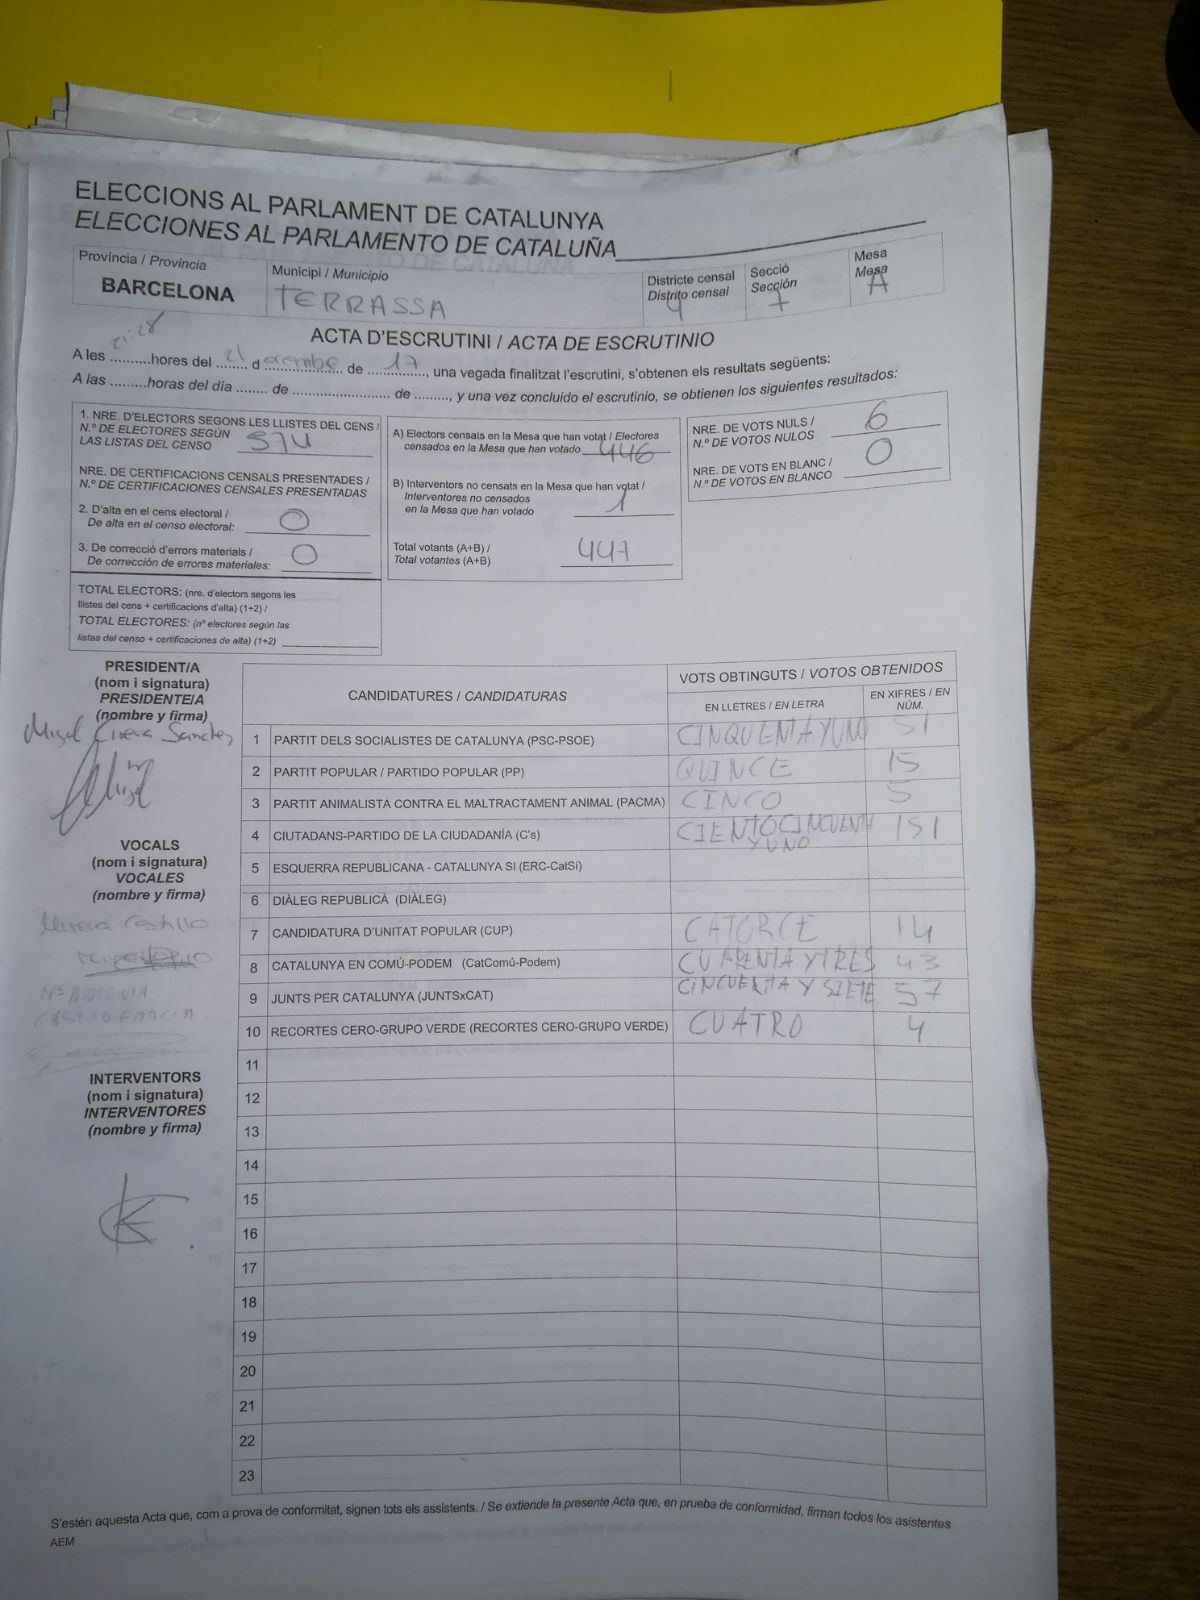 ELECCIONS AL PARLAMENT DE CATALUNYA
ELECCIONES AL PARLAMENTO DE CATALUÑA
Província / Provincia
BARCELONA
Municipi / Municipio
TERRASSA
Districte censal
Distrito censal
4
Secció
Sección
7
Mesa
Mesa
A
ACTA D'ESCRUTINI / ACTA DE ESCRUTINIO
A les 21:28 hores del 21 d de 17, una vegada finalitzat l'escrutini, s'obtenen els resultats següents:
A las .........horas del día ....... de ........................... de ........., y una vez concluido el escrutinio, se obtienen los siguientes resultados:
1. NRE. D'ELECTORS SEGONS LES LLISTES DEL CENS /
N.º DE ELECTORES SEGÚN
LAS LISTAS DEL CENSO 574
NRE. DE CERTIFICACIONS CENSALS PRESENTADES /
N.º DE CERTIFICACIONES CENSALES PRESENTADAS
2. D'alta en el cens electoral /
De alta en el censo electoral: 0
3. De correcció d'errors materials /
De corrección de errores materiales: 0
TOTAL ELECTORS: (nre. d'electors segons les
llistes del cens + certificacions d'alta) (1+2) /
TOTAL ELECTORES: (nº electores según las
listas del censo + certificaciones de alta) (1+2)
A) Electors censats en la Mesa que han votat / Electores
censados en la Mesa que han votado 446
B) Interventors no censats en la Mesa que han votat /
Interventores no censados
en la Mesa que han votado 1
Total votants (A+B) /
Total votantes (A+B) 447
NRE. DE VOTS NULS /
N.º DE VOTOS NULOS 6
NRE. DE VOTS EN BLANC /
N.º DE VOTOS EN BLANCO 0
PRESIDENT/A
(nom i signatura)
PRESIDENTE/A
(nombre y firma)
Sanchez
VOCALS
(nom i signatura)
VOCALES
(nombre y firma)
Castillo
Mª ANTONIA
INTERVENTORS
(nom i signatura)
INTERVENTORES
(nombre y firma)
CANDIDATURES / CANDIDATURAS
VOTS OBTINGUTS / VOTOS OBTENIDOS
EN LLETRES / EN LETRA
EN XIFRES / EN
NÚM.
1 PARTIT DELS SOCIALISTES DE CATALUNYA (PSC-PSOE) CINQUENTA Y UNO 51
2 PARTIT POPULAR / PARTIDO POPULAR (PP) QUINCE 15
3 PARTIT ANIMALISTA CONTRA EL MALTRACTAMENT ANIMAL (PACMA) CINCO 5
4 CIUTADANS-PARTIDO DE LA CIUDADANÍA (C's) CIENTO CINCUENTA Y UNO 151
5 ESQUERRA REPUBLICANA - CATALUNYA SI (ERC-CatSí)
6 DIÀLEG REPUBLICÀ (DIÀLEG)
7 CANDIDATURA D'UNITAT POPULAR (CUP) CATORCE 14
8 CATALUNYA EN COMÚ-PODEM (CatComú-Podem) CUARENTA Y TRES 43
9 JUNTS PER CATALUNYA (JUNTSxCAT) CINCUENTA Y SIETE 57
10 RECORTES CERO-GRUPO VERDE (RECORTES CERO-GRUPO VERDE) CUATRO 4
11
12
13
14
15
16
17
18
19
20
21
22
23
S'estén aquesta Acta que, com a prova de conformitat, signen tots els assistents. / Se extiende la presente Acta que, en prueba de conformidad, firman todos los asistentes.
AEM